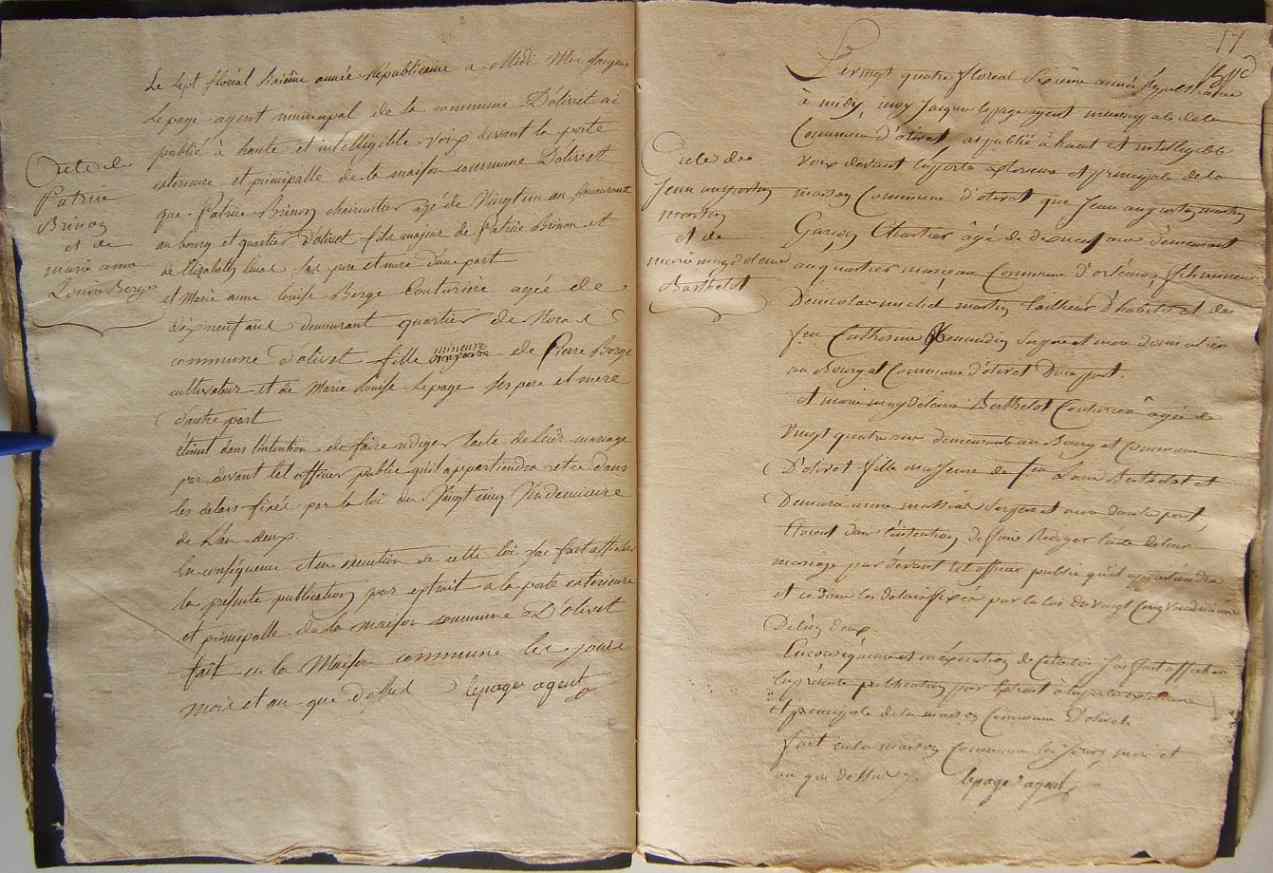 Le sept floréal sixième année Républicaine a Midi Moi Jacques
Lepage agent municipal de la commune D'olivet ai
publié à haute et intelligible voix devant la porte
exterieure et principalle de la maison commune D'olivet
que Patrice Brinon chaircuitier agé de Vingt un an demeurant
au bourg et quartier D'olivet fils majeur de Patrice Brinon et
de Elizabeth ses pere et mere d'une part
et Marie anne louise Berge Couturiere agée de
dixneuf ans demeurant quartier de
commune D'olivet fille mineure de Pierre Berge
cultivateur et de Marie Louise Lepage ses pere et mere
d'autre part
étant dans l'intention de faire rediger l'acte de leur mariage
par devant tel officier public qu'il appartiendra et ce dans
les delais fixés par la loi du Vingt cinq Vendemiaire
de L'an deux
En conséquence et en execution de cette loi j'ai fait afficher
la presente publication par extrait a la porte exterieure
et principalle de la maison commune D'olivet
fait en la Maison commune les jours
mois et an que dessus lepage agent
acte de
Patrice
Brinon
et de
marie anne
Louise Berge
17
Le vingt quatre floreal Sixième année Republicaine
à midy, moy Jacque lepage agent municipale de la
Commune d'olivet, ai publié à haute et intelligible
voix devant la porte exterieure et principale de la
maison Commune d'olivet que Jean augustin martin
Garçon Chartier âgé de ans demeurant
au quartier Commune d'orléans, fils mineur
De nicolas michel martin tailleur d'habits et de
feu Catherine ses pere et mere
au Bourg et Commune d'olivet D'une part.
et marie magdeleine Berthelot Couturiere âgée de
vingt quatre ans demeurante au Bourg et Commune
D'olivet fille majeure de feu Louis Berthelot et
De marie anne ses pere et mere D'autre part,
Etant dans l'intention de faire Rediger l'acte de leur
mariage par devant tel officier public qu'il appartiendra
et ce dans les delais fixés par la loi du vingt Cinq Vendemiaire
De l'an deux.
En conséquence et en execution de cette loi j'ai fait afficher
la présente publication par Extrait à la porte exterieure
et principale de la maison Commune D'olivet
fait en la maison Commune les jours mois et
an que dessus. lepage agent
acte de
Jean augustin
martin
et de
marie magdeleine
Berthelot